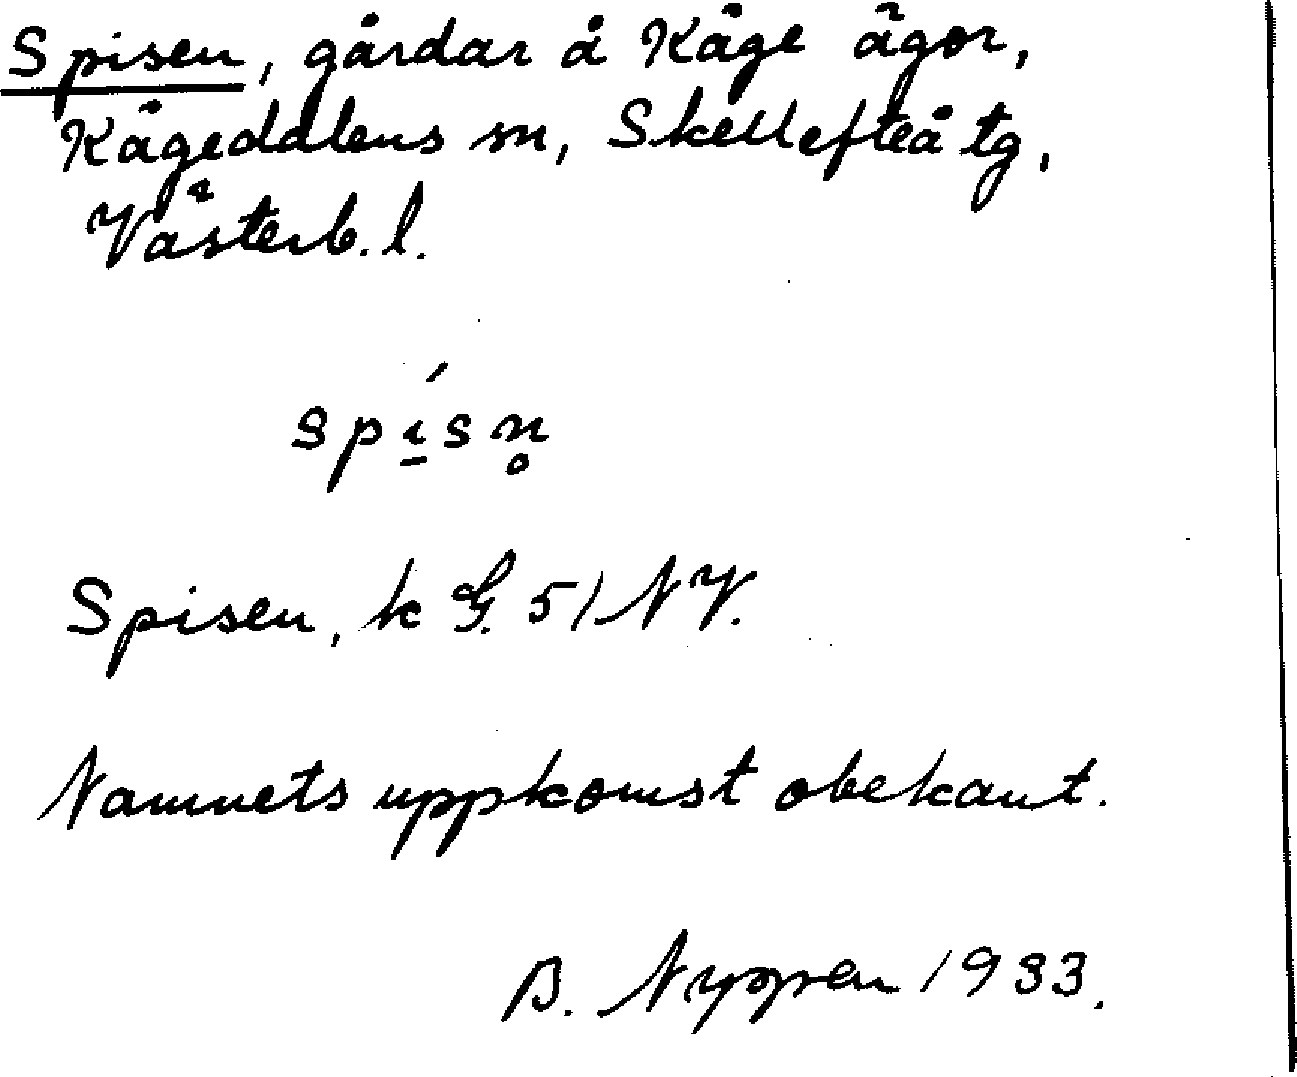 Spisen, gårdar å Kåge ägor,
Kågedalens sn, Skellefteå tg,
Västerb. l.
spí̱sn̥
Spisen, k G. 51 NV.
Namnets uppkomst obekant.
B. 1933.